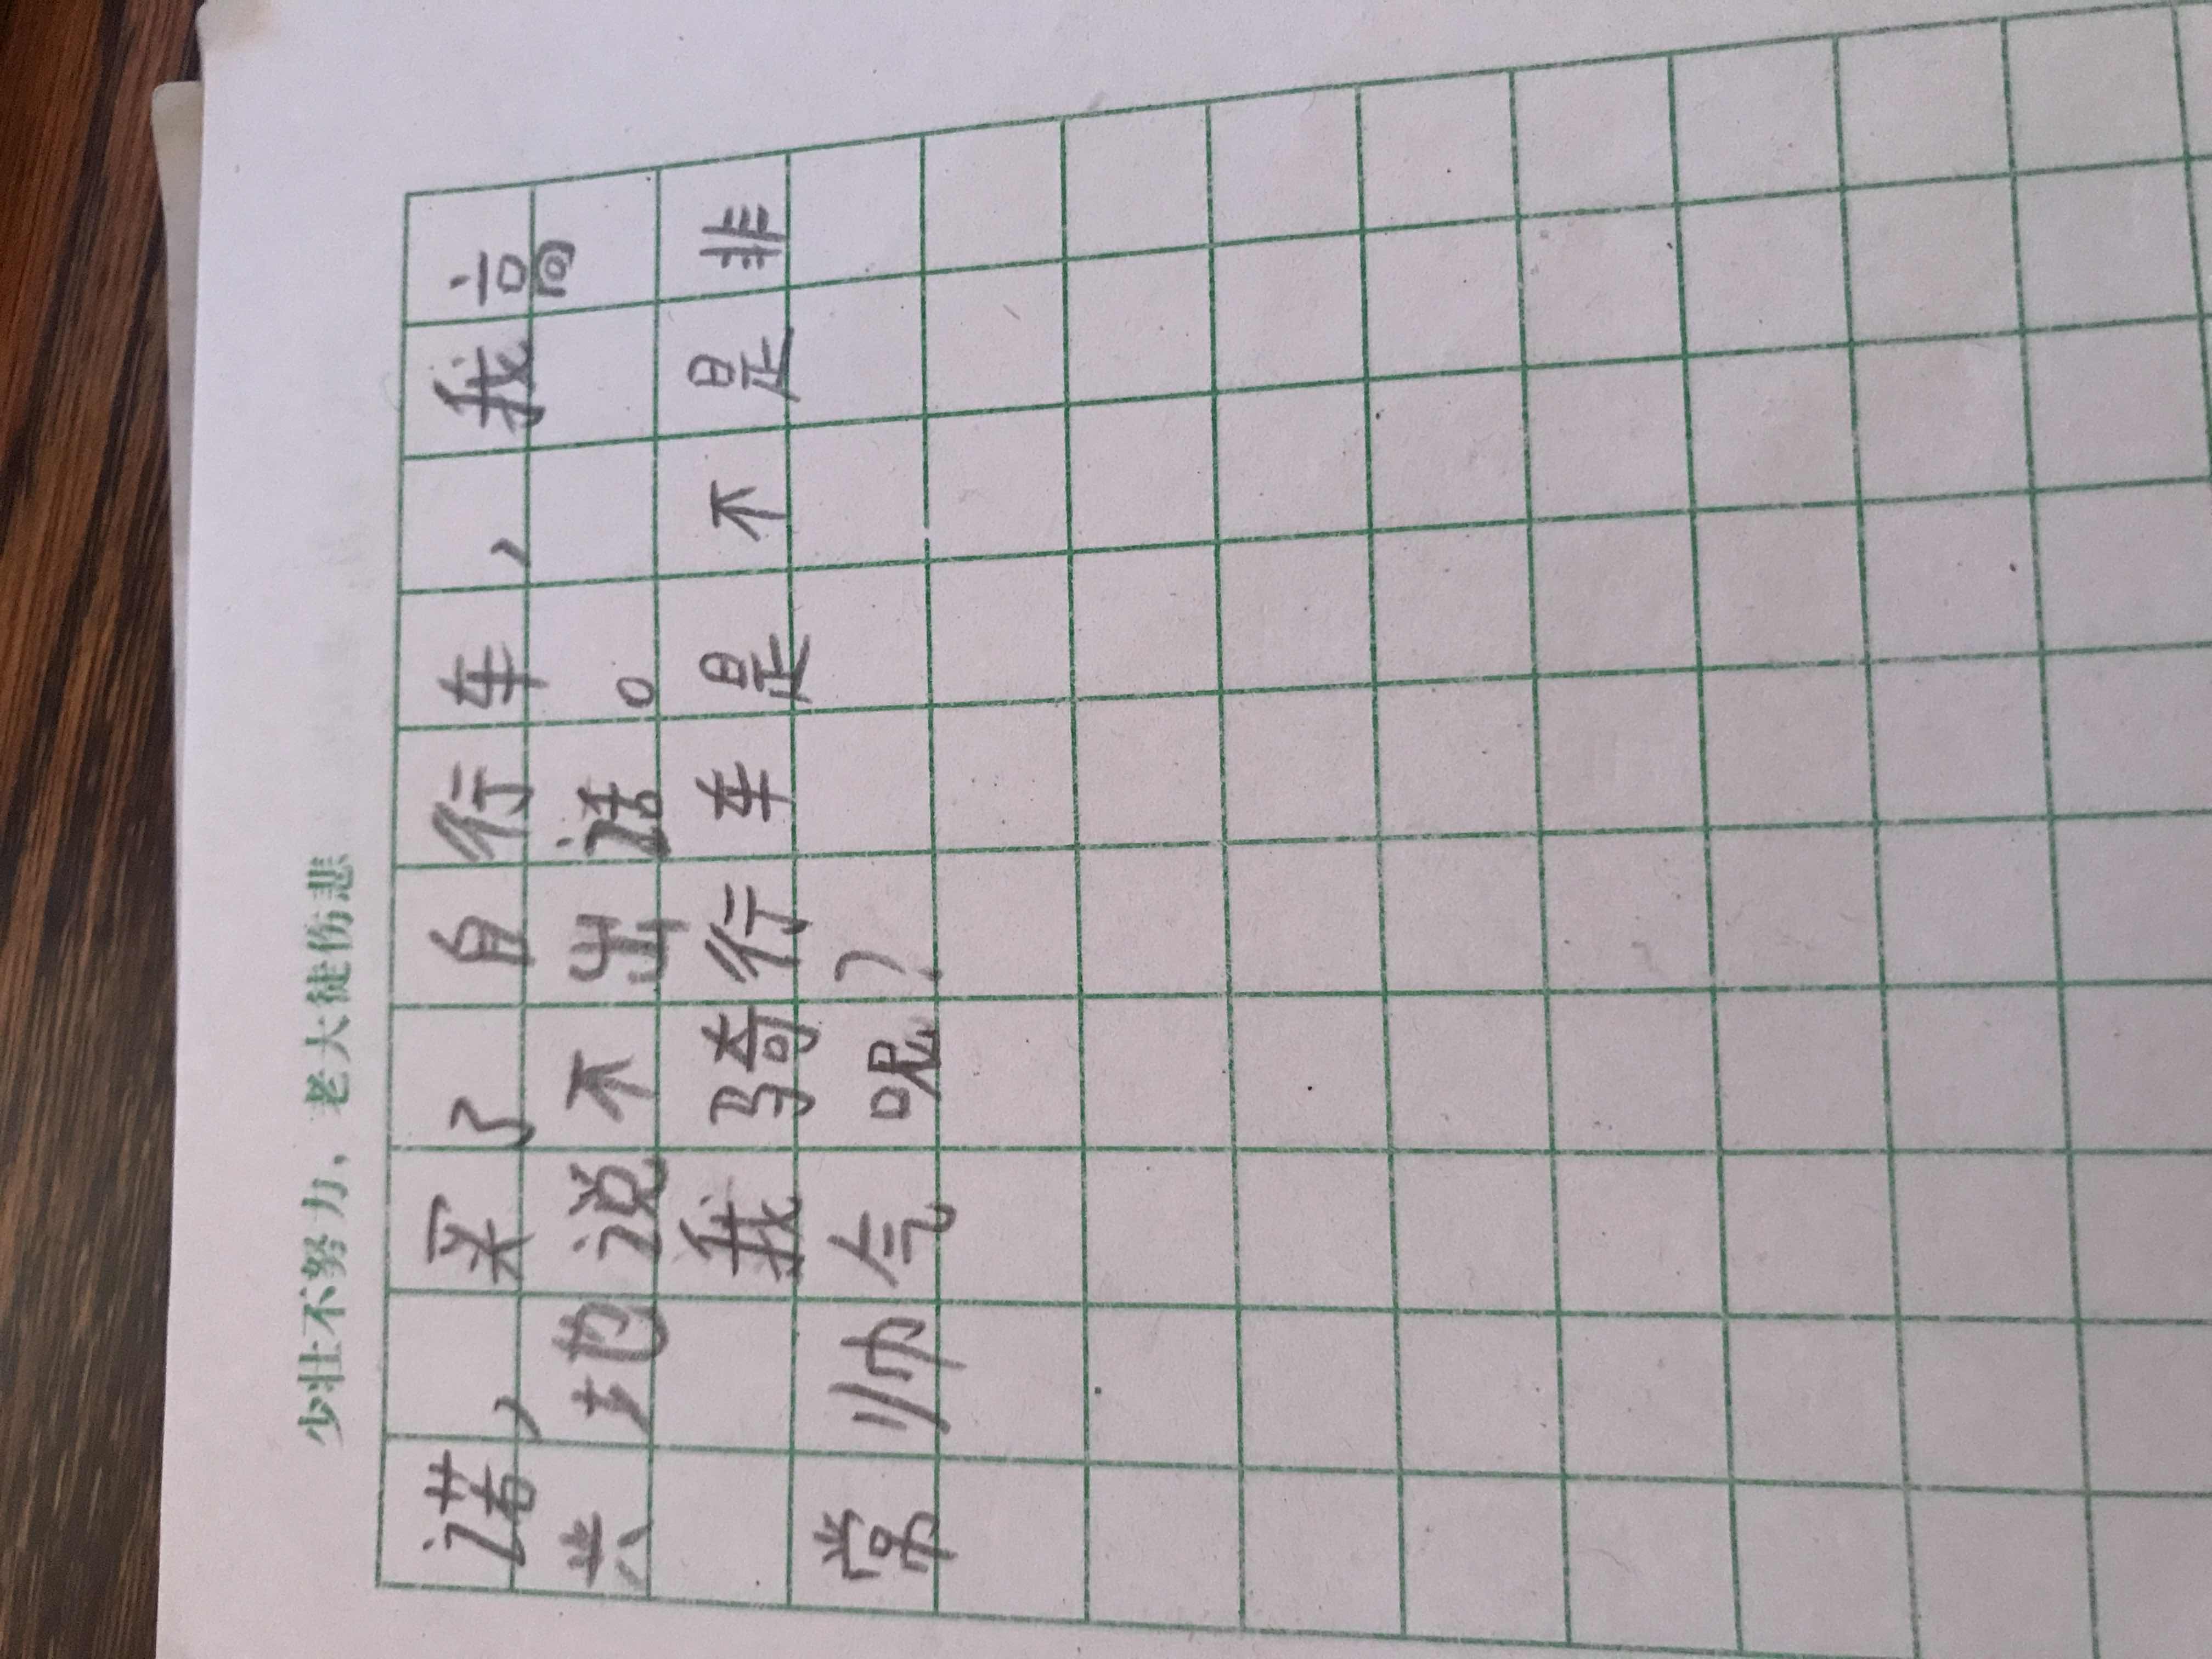 少壮不努力，老大徒伤悲
诺，买了自行车，我高
兴地说不出话。
我骑行车是不是非
常帅气呢？